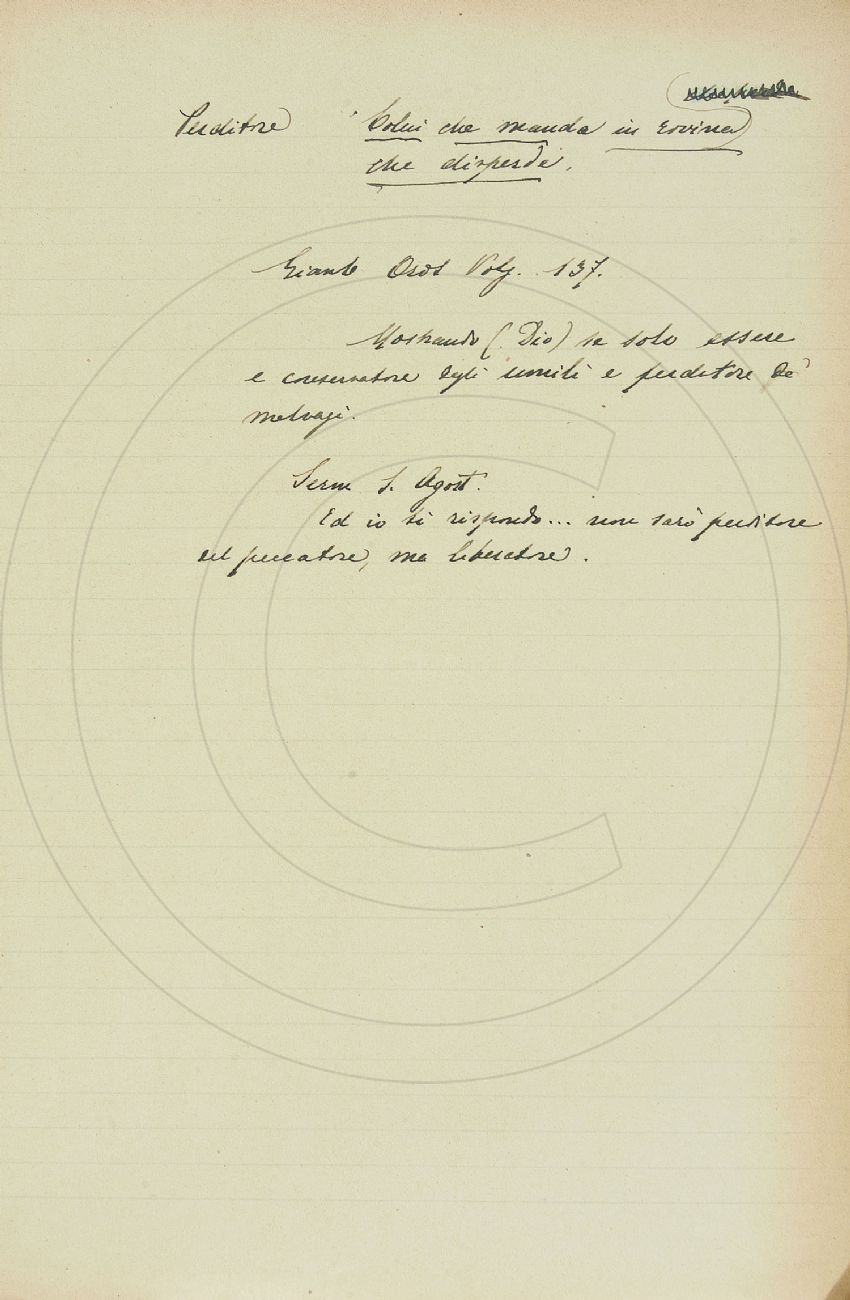 Perditore Colui che manda in rovina
che disperde.
Giamb Oros Volg. 137.
Mostrando (Dio) se solo essere
e conservatore degli umili e perditore de'
malvagi.
Serm S. Agost.
Ed io ti rispondo... non sarò perditore
del peccatore, ma liberatore.